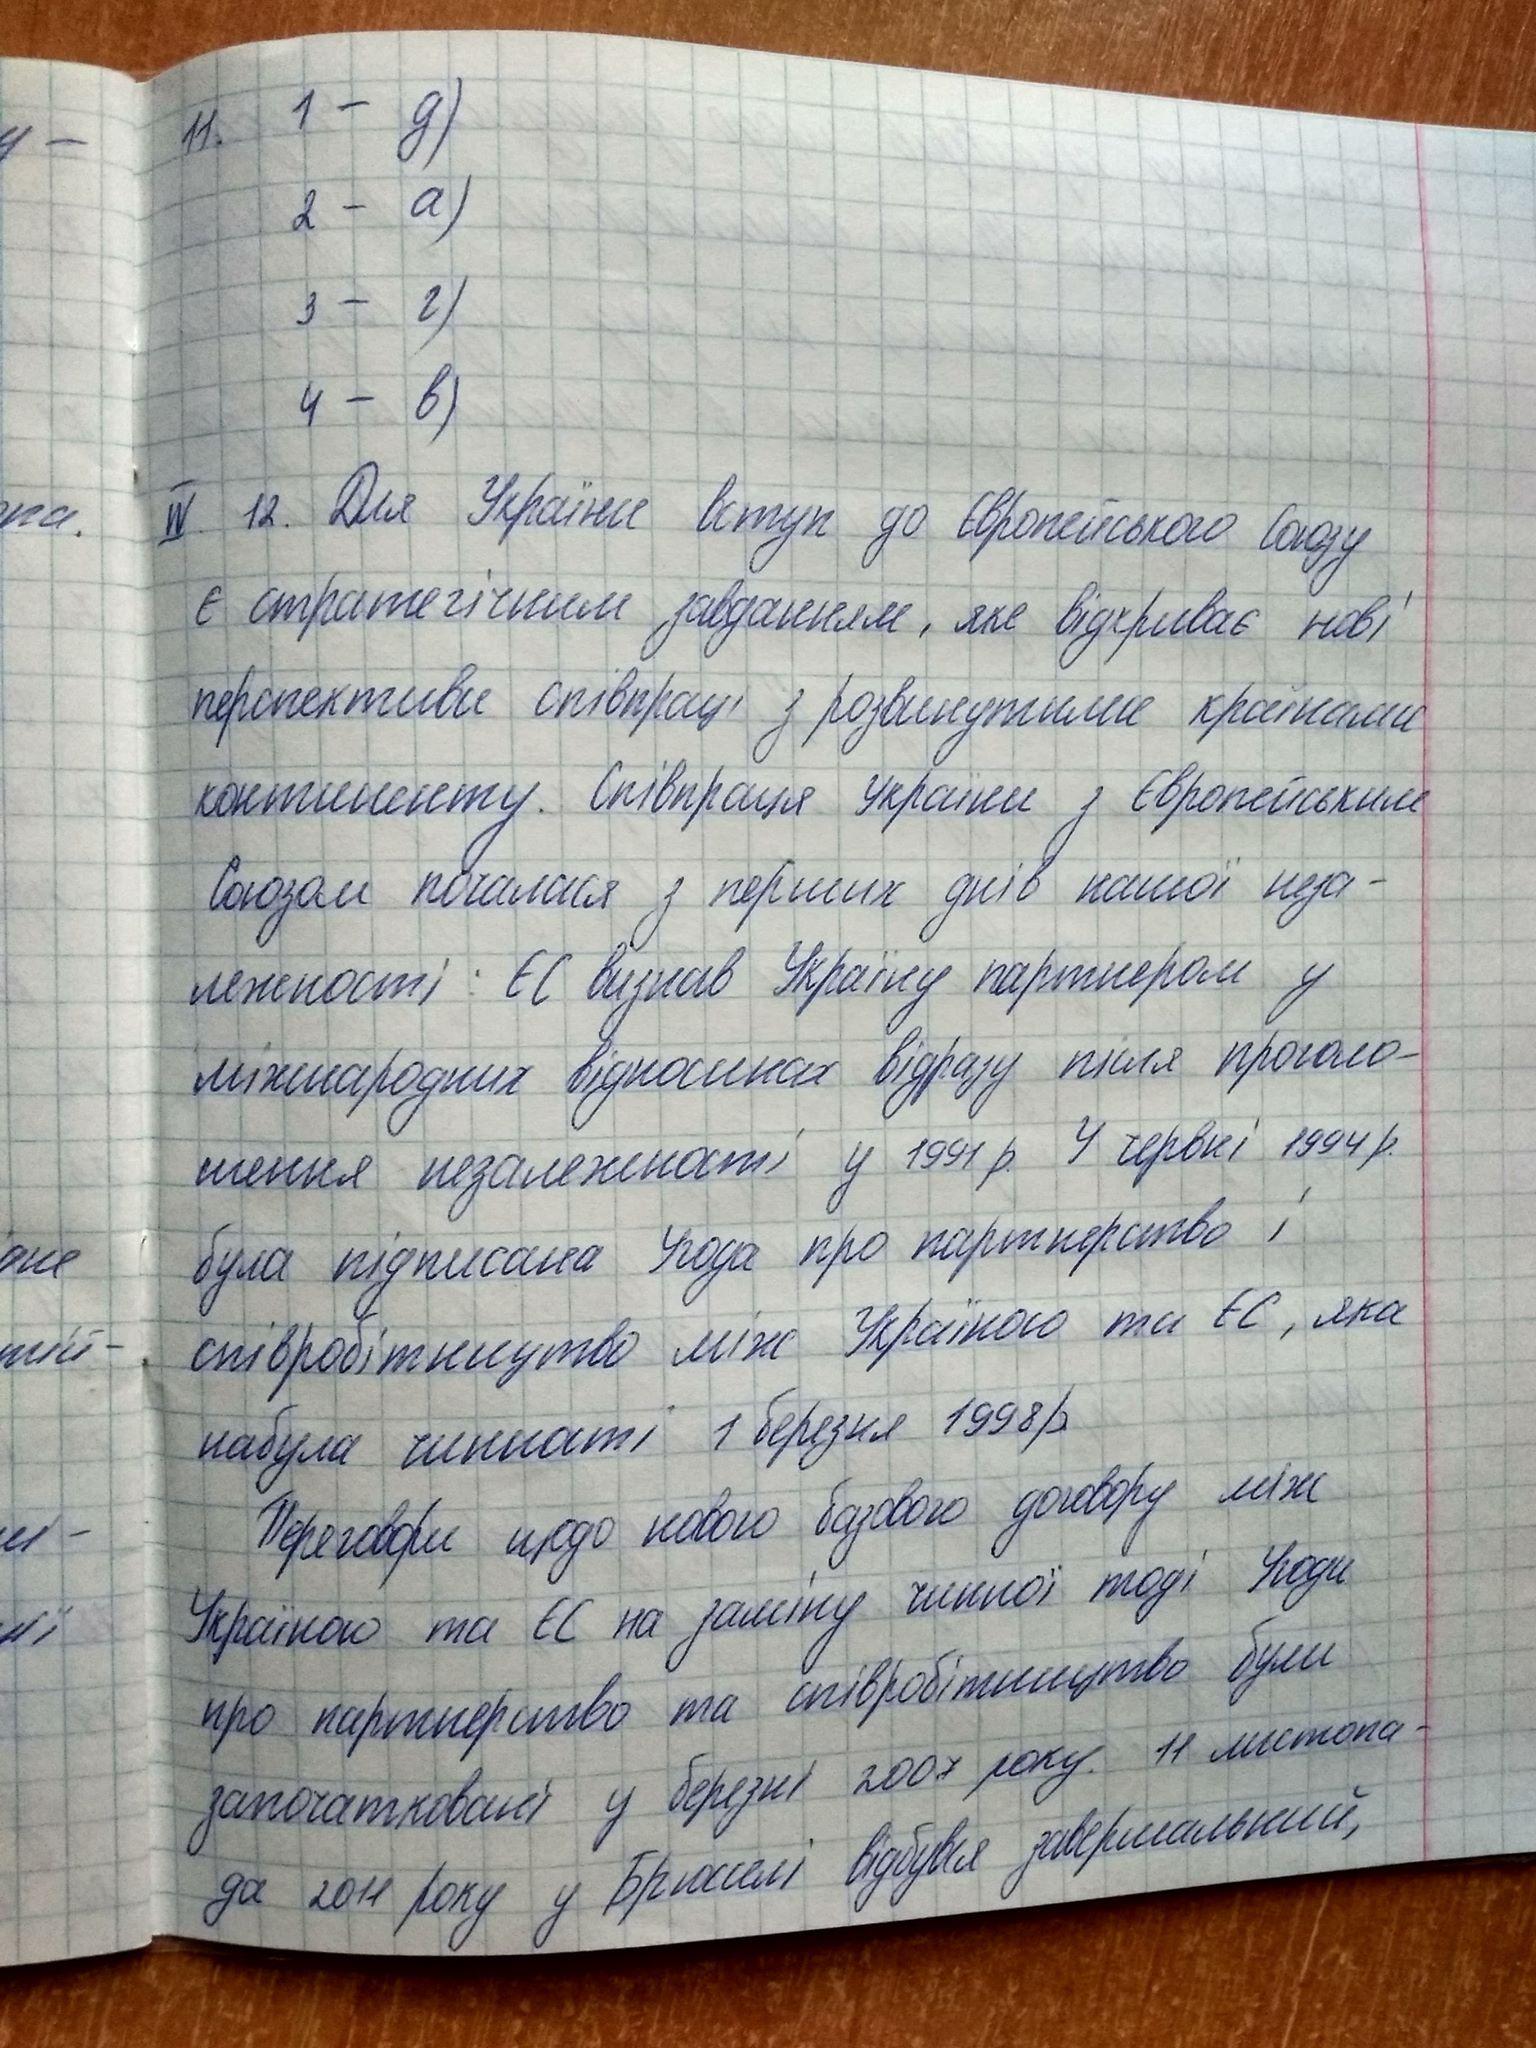 11. 1 - д)
2 - а)
3 - г)
4 - в)
IV. 12. Для України вступ до Європейського Союзу
є стратегічним завданням, яке відкриває нові
перспективи співпраці з розвинутими країнами
континенту. Співпраця України з Європейським
Союзом почалася з перших днів нашої неза-
лежності: ЄС визнав Україну партнером у
міжнародних відносинах відразу після проголо-
шення незалежності у 1991 р. У червні 1994 р.
була підписана Угода про партнерство і
співробітництво між Україною та ЄС, яка
набула чинності 1 березня 1998р.
Переговори щодо нового базового договору між
Україною та ЄС на заміну чинної тоді Угоди
про партнерство та співробітництво були
започатковані у березні 2007 року. 11 листопа-
да 2011 року у Брюсселі відбувся завершальний,